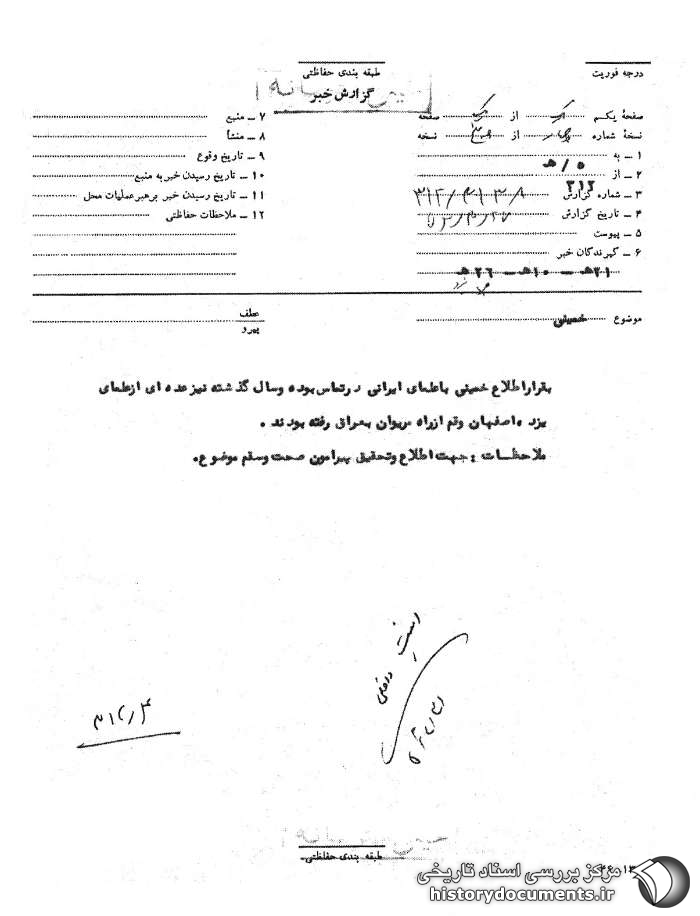 درجه فوریت
طبقه بندی حفاظتی
گزارش خبر
صفحهٔ یکم از صفحه
نسخهٔ شماره از نسخه
۱ ـ به ۵/هـ
۲ ـ از ۳۱۲
۳ ـ شماره گزارش
۴ ـ تاریخ گزارش
۵ ـ پیوست
۶ ـ گیرندگان خبر
۲۱هـ ـ ۱۰هـ ـ ۲۶هـ
۷ ـ منبع
۸ ـ منشأ
۹ ـ تاریخ وقوع
۱۰ ـ تاریخ رسیدن خبر به منبع
۱۱ ـ تاریخ رسیدن خبر برهبر عملیات محل
۱۲ ـ ملاحظات حفاظتی
موضوع خمینی
عطف
پیرو
بقرار اطلاع خمینی با علمای ایرانی در تماس بوده و سال گذشته نیز عده ای از علمای
یزد ، اصفهان و قم از راه مریوان بعراق رفته بودند .
ملاحظات : جهت اطلاع و تحقیق پیرامون صحت و سقم موضوع.
طبقه بندی حفاظتی
مرکز بررسی اسناد تاریخی
historydocuments.ir